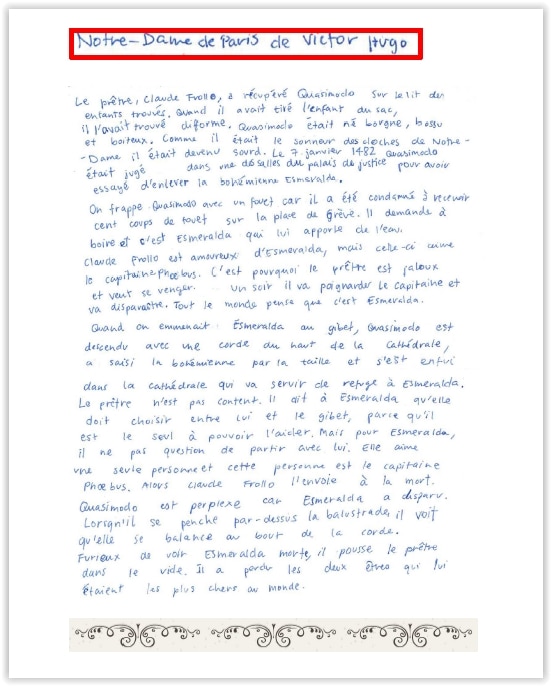 Notre-Dame de Paris de Victor Hugo
Le prêtre, Claude Frollo, a récupéré Quasimodo sur le lit des
enfants trouvés. Quand il avait tiré l'enfant du sac,
il l'avait trouvé diforme. Quasimodo était né borgne, bossu
et boiteux. Comme il était le sonneur des cloches de Notre-
-Dame il était devenu sourd. Le 7 janvier 1482 Quasimodo
était jugé dans une des salles du palais de justice pour avoir
essayé d'enlever la bohémienne Esmeralda.
On frappe Quasimodo avec un fouet car il a été condamné à recevoir
cent coups de fouet sur la place de Grève. Il demande à
boire et c'est Esmeralda qui lui apporte de l'eau.
Claude Frollo est amoureux d'Esmeralda, mais celle-ci aime
le capitaine Phoebus. C'est pourquoi le prêtre est jaloux
et veut se venger. Un soir il va poignarder le capitaine et
va disparaître. Tout le monde pense que c'est Esmeralda.
Quand on emmenait Esmeralda au gibet, Quasimodo est
descendu avec une corde du haut de la cathédrale,
a saisi la bohémienne par la taille et s'est enfui
dans la cathédrale qui va servir de refuge à Esmeralda.
Le prêtre n'est pas content. Il dit à Esmeralda qu'elle
doit choisir entre lui et le gibet, parce qu'il
est le seul à pouvoir l'aider. Mais pour Esmeralda,
il ne pas question de partir avec lui. Elle aime
une seule personne et cette personne est le capitaine
Phoebus. Alors Claude Frollo l'envoie à la mort.
Quasimodo est perplexe car Esmeralda a disparu.
Lorsqu'il se penche par-dessus la balustrade, il voit
qu'elle se balance au bout de la corde.
Furieux de voir Esmeralda morte, il pousse le prêtre
dans le vide. Il a perdu les deux êtres qui lui
étaient les plus chers au monde.